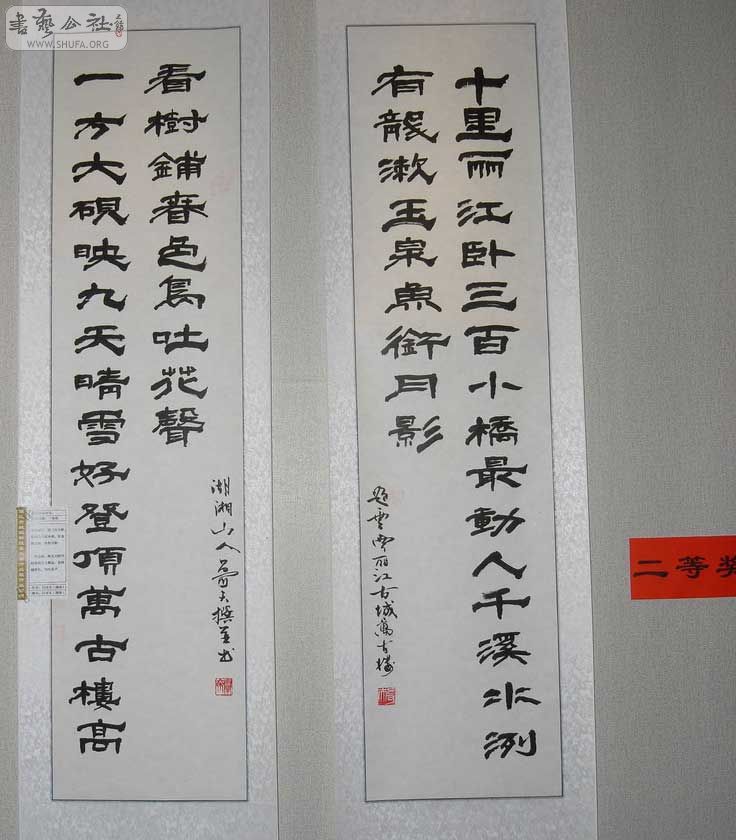 書藝公社
WWW.SHUFA.ORG
十里丽江卧三百小橋最動人千溪水洌
有龍漱玉泉魚銜月影
題雲南丽江古城萬古樓
一方大硯映九天晴雪好登頂萬古樓高
看樹鋪春色鳥吐花聲
湖湘山人撰並书
二等奖